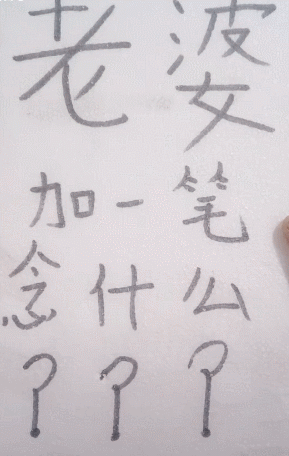 老婆
加一笔
念什么
???